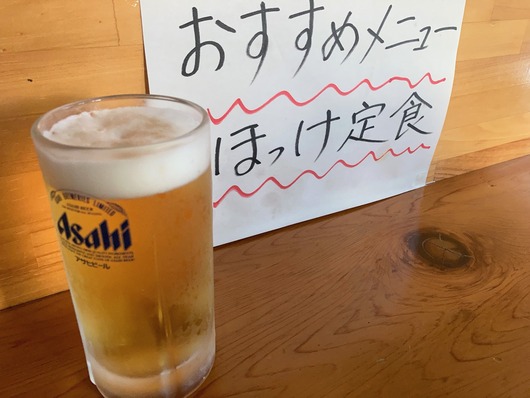 おすすめメニュー
ほっけ定食
Asahi
アサヒビール